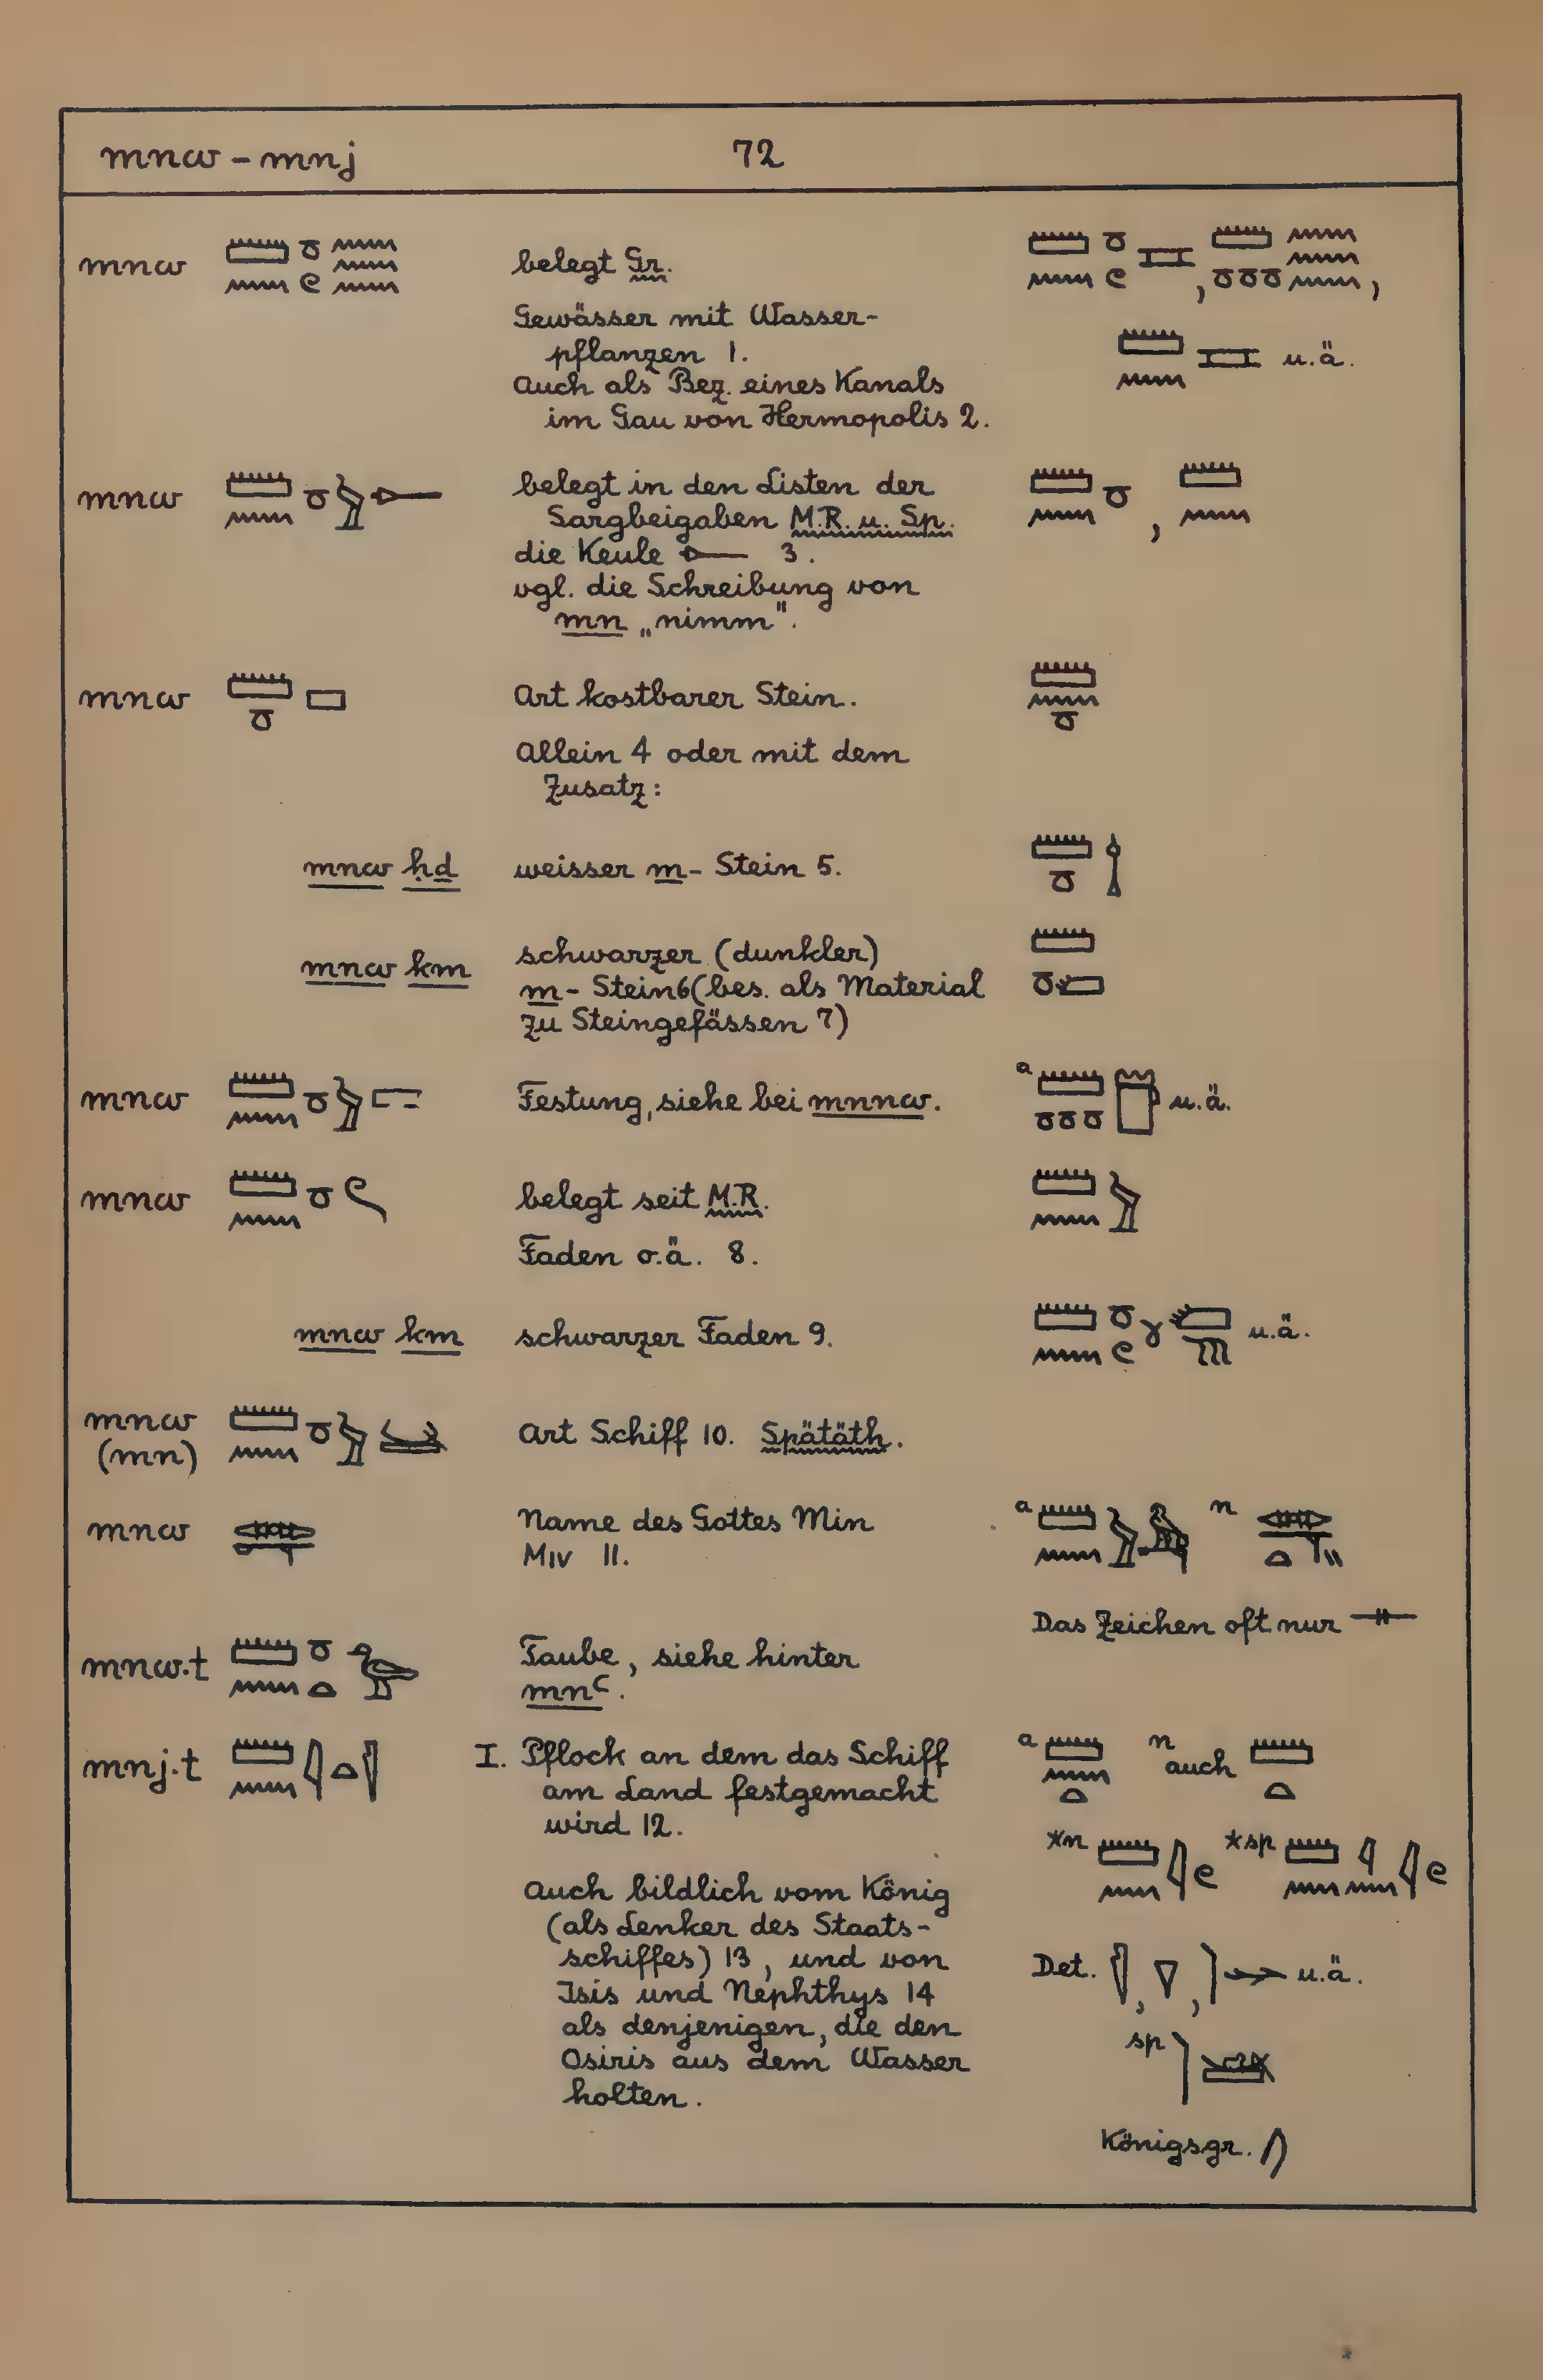 mnw – mnj 72
mnw
belegt Gr.
Gewässer mit Wasser-
pflanzen 1.
Auch als Bez. eines Kanals
im Gau von Hermopolis 2.
u.ä.
mnw
belegt in den Listen der
Sargbeigaben M.R. u. Sp.
die Keule 3.
vgl. die Schreibung von
mn „nimm".
mnw
Art kostbarer Stein.
Allein 4 oder mit dem
Zusatz:
mnw ḥḏ weisser m- Stein 5.
mnw km
schwarzer (dunkler)
m- Stein 6 (bes. als Material
zu Steingefässen 7)
mnw Festung, siehe bei mnnw. a u.ä.
mnw belegt seit M.R.
Faden o.ä. 8.
mnw km schwarzer Faden 9. u.ä.
mnw
(mn)
Art Schiff 10. Spätäth.
mnw
Name des Gottes Min
Μιν 11.
a n
Das Zeichen oft nur
mnw.t
Taube, siehe hinter
mnꜥ.
mnj.t
I. Pflock an dem das Schiff
am Land festgemacht
wird 12.
Auch bildlich vom König
(als Lenker des Staats-
schiffes) 13, und von
Isis und Nephthys 14
als denjenigen, die den
Osiris aus dem Wasser
holten.
a n auch
*n *sp
Det. u.ä.
sp
Königsgr.